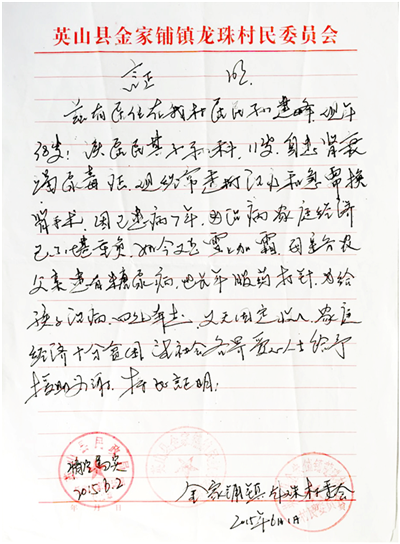 英山县金家铺镇龙珠村民委员会
证 明
兹有原住在我村居民和建峰，现年
38岁；该居民其子和科，11岁，身患肾衰
竭尿毒症，现经常透析治疗和急需换
肾手术，因已患病7年，因治病家庭经济
已不堪重负，如今又是雪上加霜，
父亲患有糖尿病，也长年服药打针，为给
孩子治病，四处奔走，又无固定收入，家庭
经济十分贫困 请社会各界爱心人士给予
援助为谢，特此证明！
情况属实
2015.6.2
金家铺镇龙珠村委会
2015年6月1日